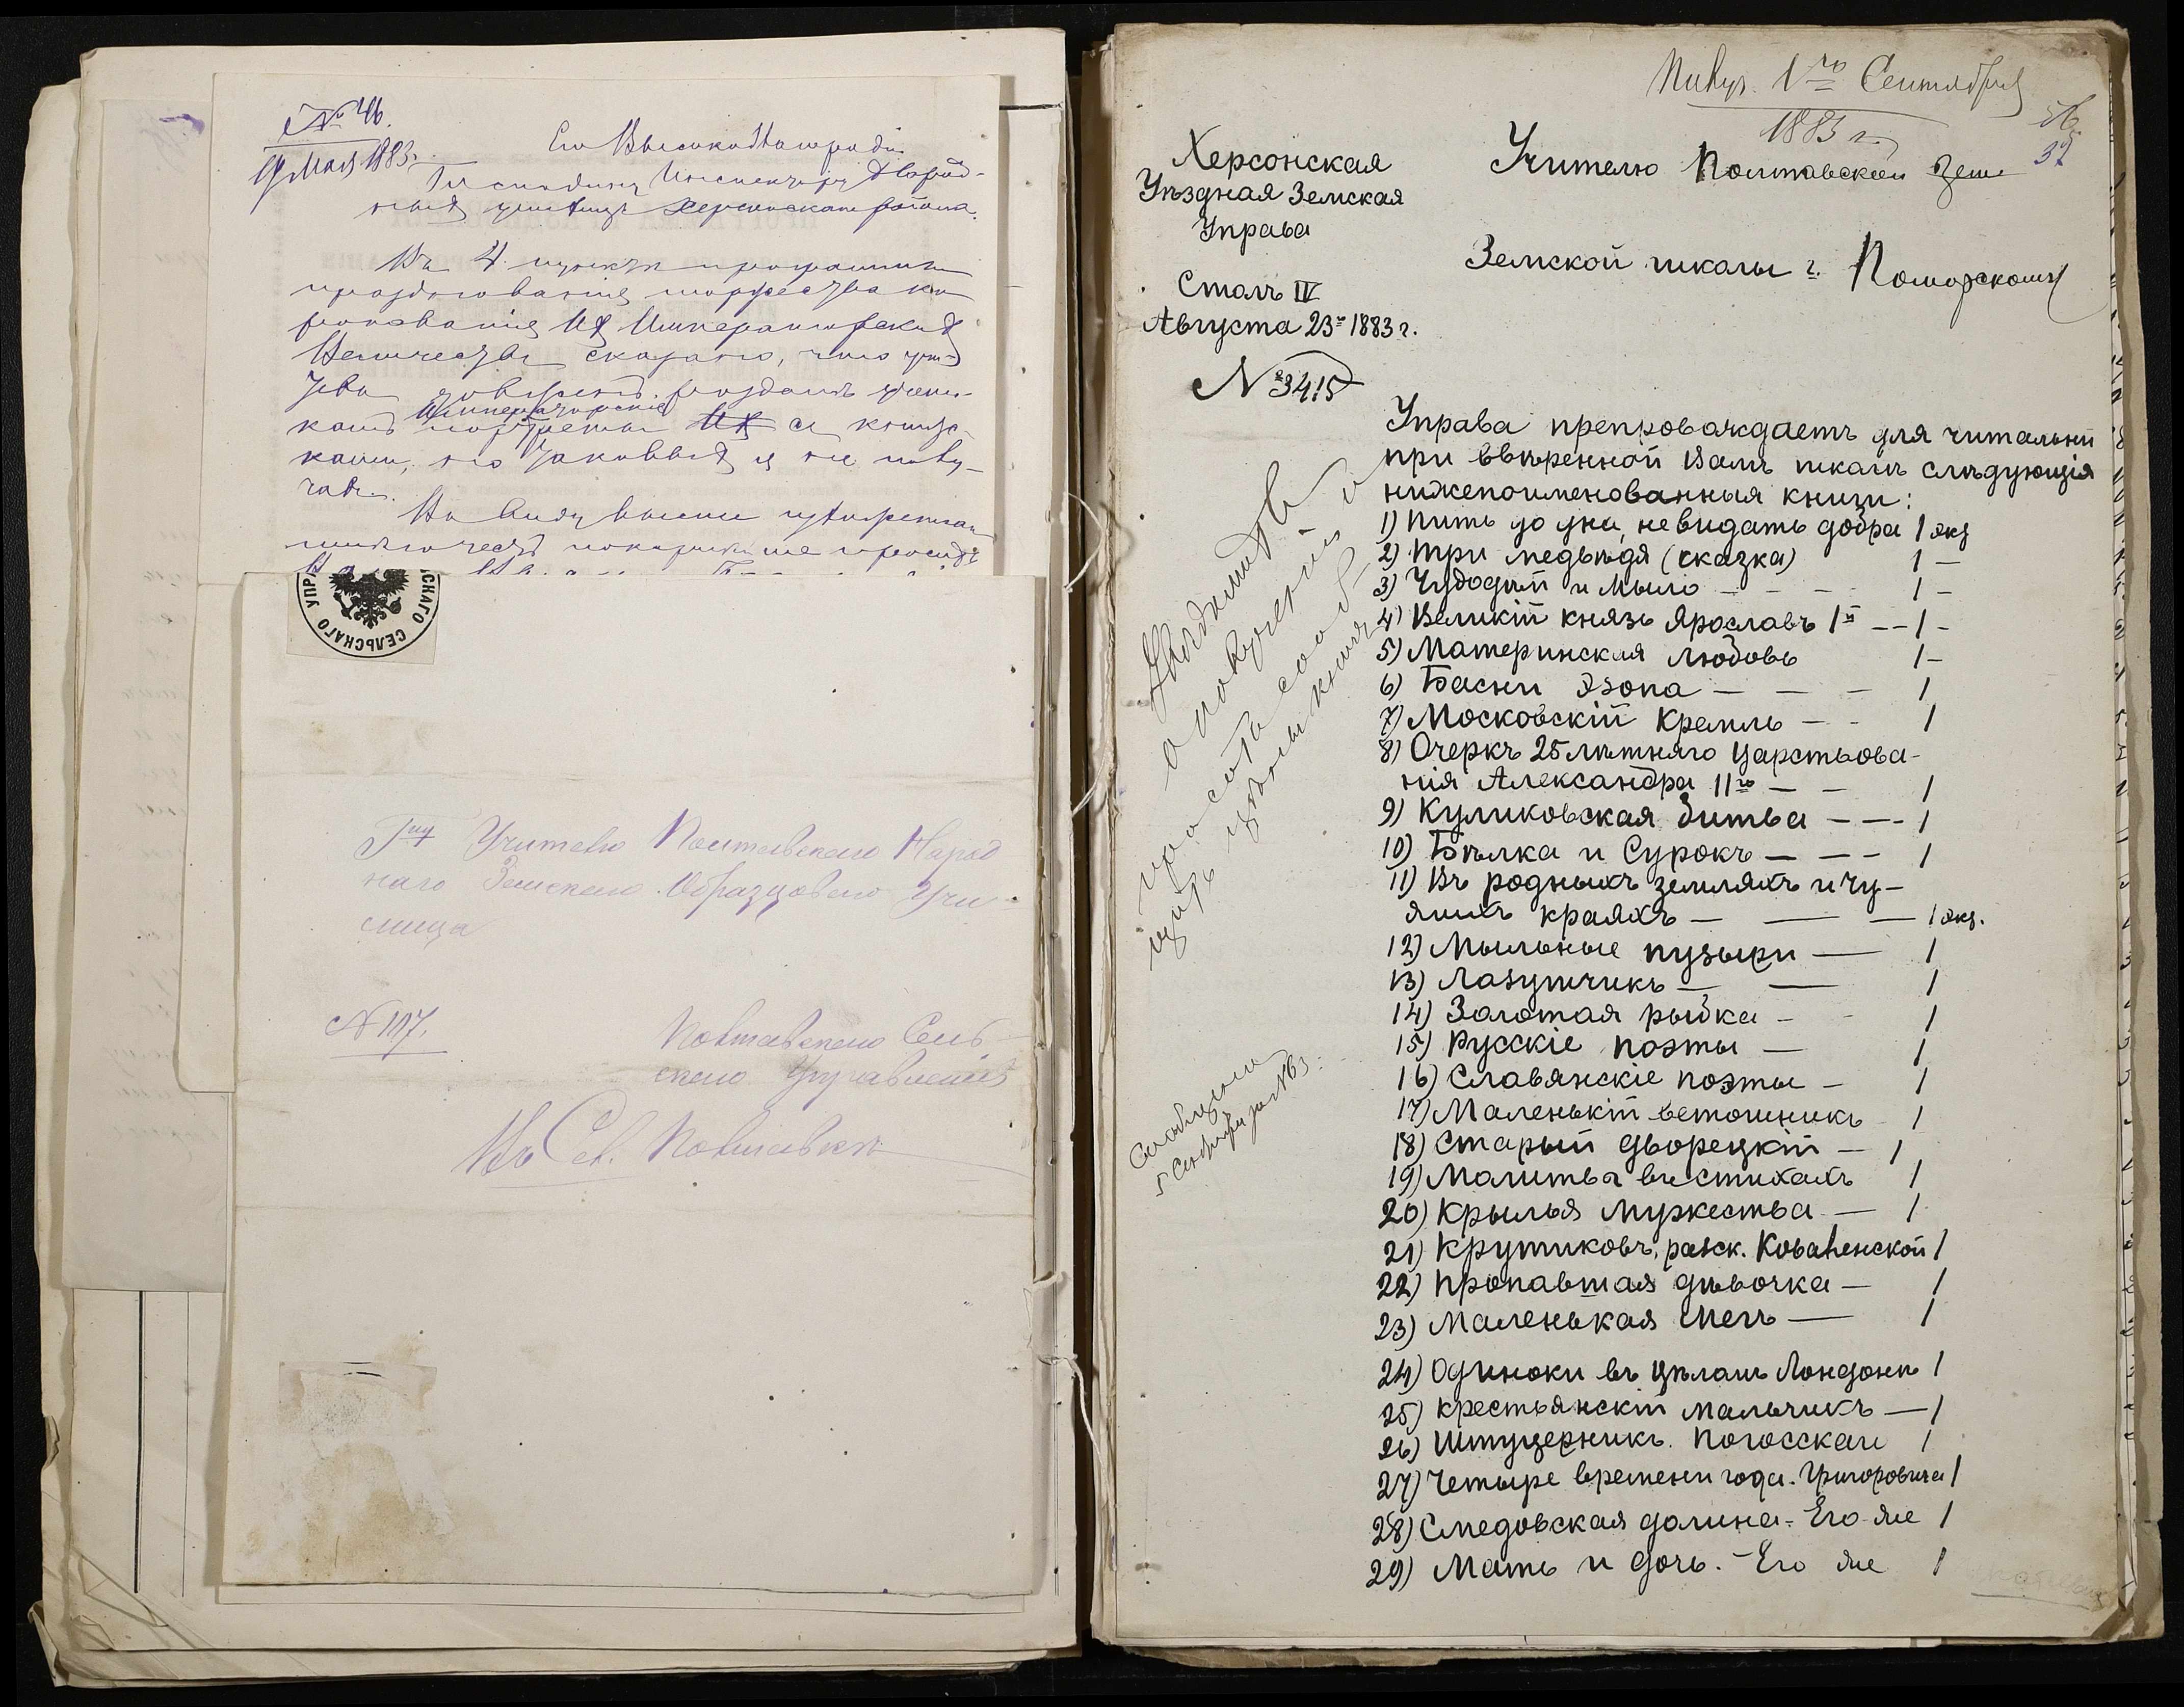 № 46.
19 Мая 1883 г.
Его Высокоблагородію
Господину Инспектору Народ-
ныхъ училищъ Херсонскаго района.
Въ 4 пунктѣ программы
празднованія торжества ко
ронованія Ихъ Императорскихъ
Величествъ сказано, что учи-
раздать учени-
камъ Императорскіе портреты Ихъ съ книж-
ками, но таковыхъ я не полу-
чалъ.
Въ виду выше
покорнѣйше
СЕЛЬСКАГО УПР
Гну Учителю Полтавскаго Народ
наго Земскаго Образцоваго Учи-
лища
№ 107.
Полтавскаго Сель-
скаго Управленія
Въ Сел. Полтавкѣ
Получ. 1го Сентября
1883 г.
56
32
Херсонская
Уѣздная Земская
Управа
Столъ IV
Августа 23го 1883 г.
№ 3415
Учителю Полтавской Земс
Земской школы г. Поморскому
Управа препровождаетъ для читальни
при ввѣренной Вамъ школѣ слѣдующія
нижепоименованныя книги:
1) Пить до дна, не видать добра 1 экз
2) Три медвѣдя (сказка) 1 —
3) Чудодѣй и Мыло — — — 1 —
4) Великій князь Ярославъ Iй — — 1 —
5) Материнская любовь 1 —
6) Басни Эзопа — — — 1
7) Московскій Кремль — — 1
8) Очеркъ 25 лѣтняго царствова-
нія Александра IIго — — 1
9) Куликовская битва — — — 1
10) Бѣлка и Сурокъ — — — 1
11) Въ родныхъ земляхъ и чу-
жихъ краяхъ — — — 1 экз.
12) Мыльные пузыри — 1
13) Лазутчикъ — — 1
14) Золотая рыбка — - 1
15) Русскіе поэты — 1
16) Славянскіе поэты — 1
17) Маленькій ветошникъ 1
18) Старый дворецкій — 1
19) Молитвы въ стихахъ 1
20) Крылья мужества — 1
21) Крутиковъ, разск. Коваленской 1
22) Пропавшая дѣвочка — 1
23) Маленькая Мегъ — 1
24) Одиноки въ цѣломъ Лондонѣ 1
25) Крестьянскій мальчикъ — 1
26) Штуцерникъ. Погосскаго 1
27) Четыре времени года. Григоровича 1
28) Смедовская долина. Его-же 1
29) Мать и дочь. — Его же 1
Увѣдомить
о полученіи и
цѣны книгъ
Сообщено
5 Сентября за № 63.